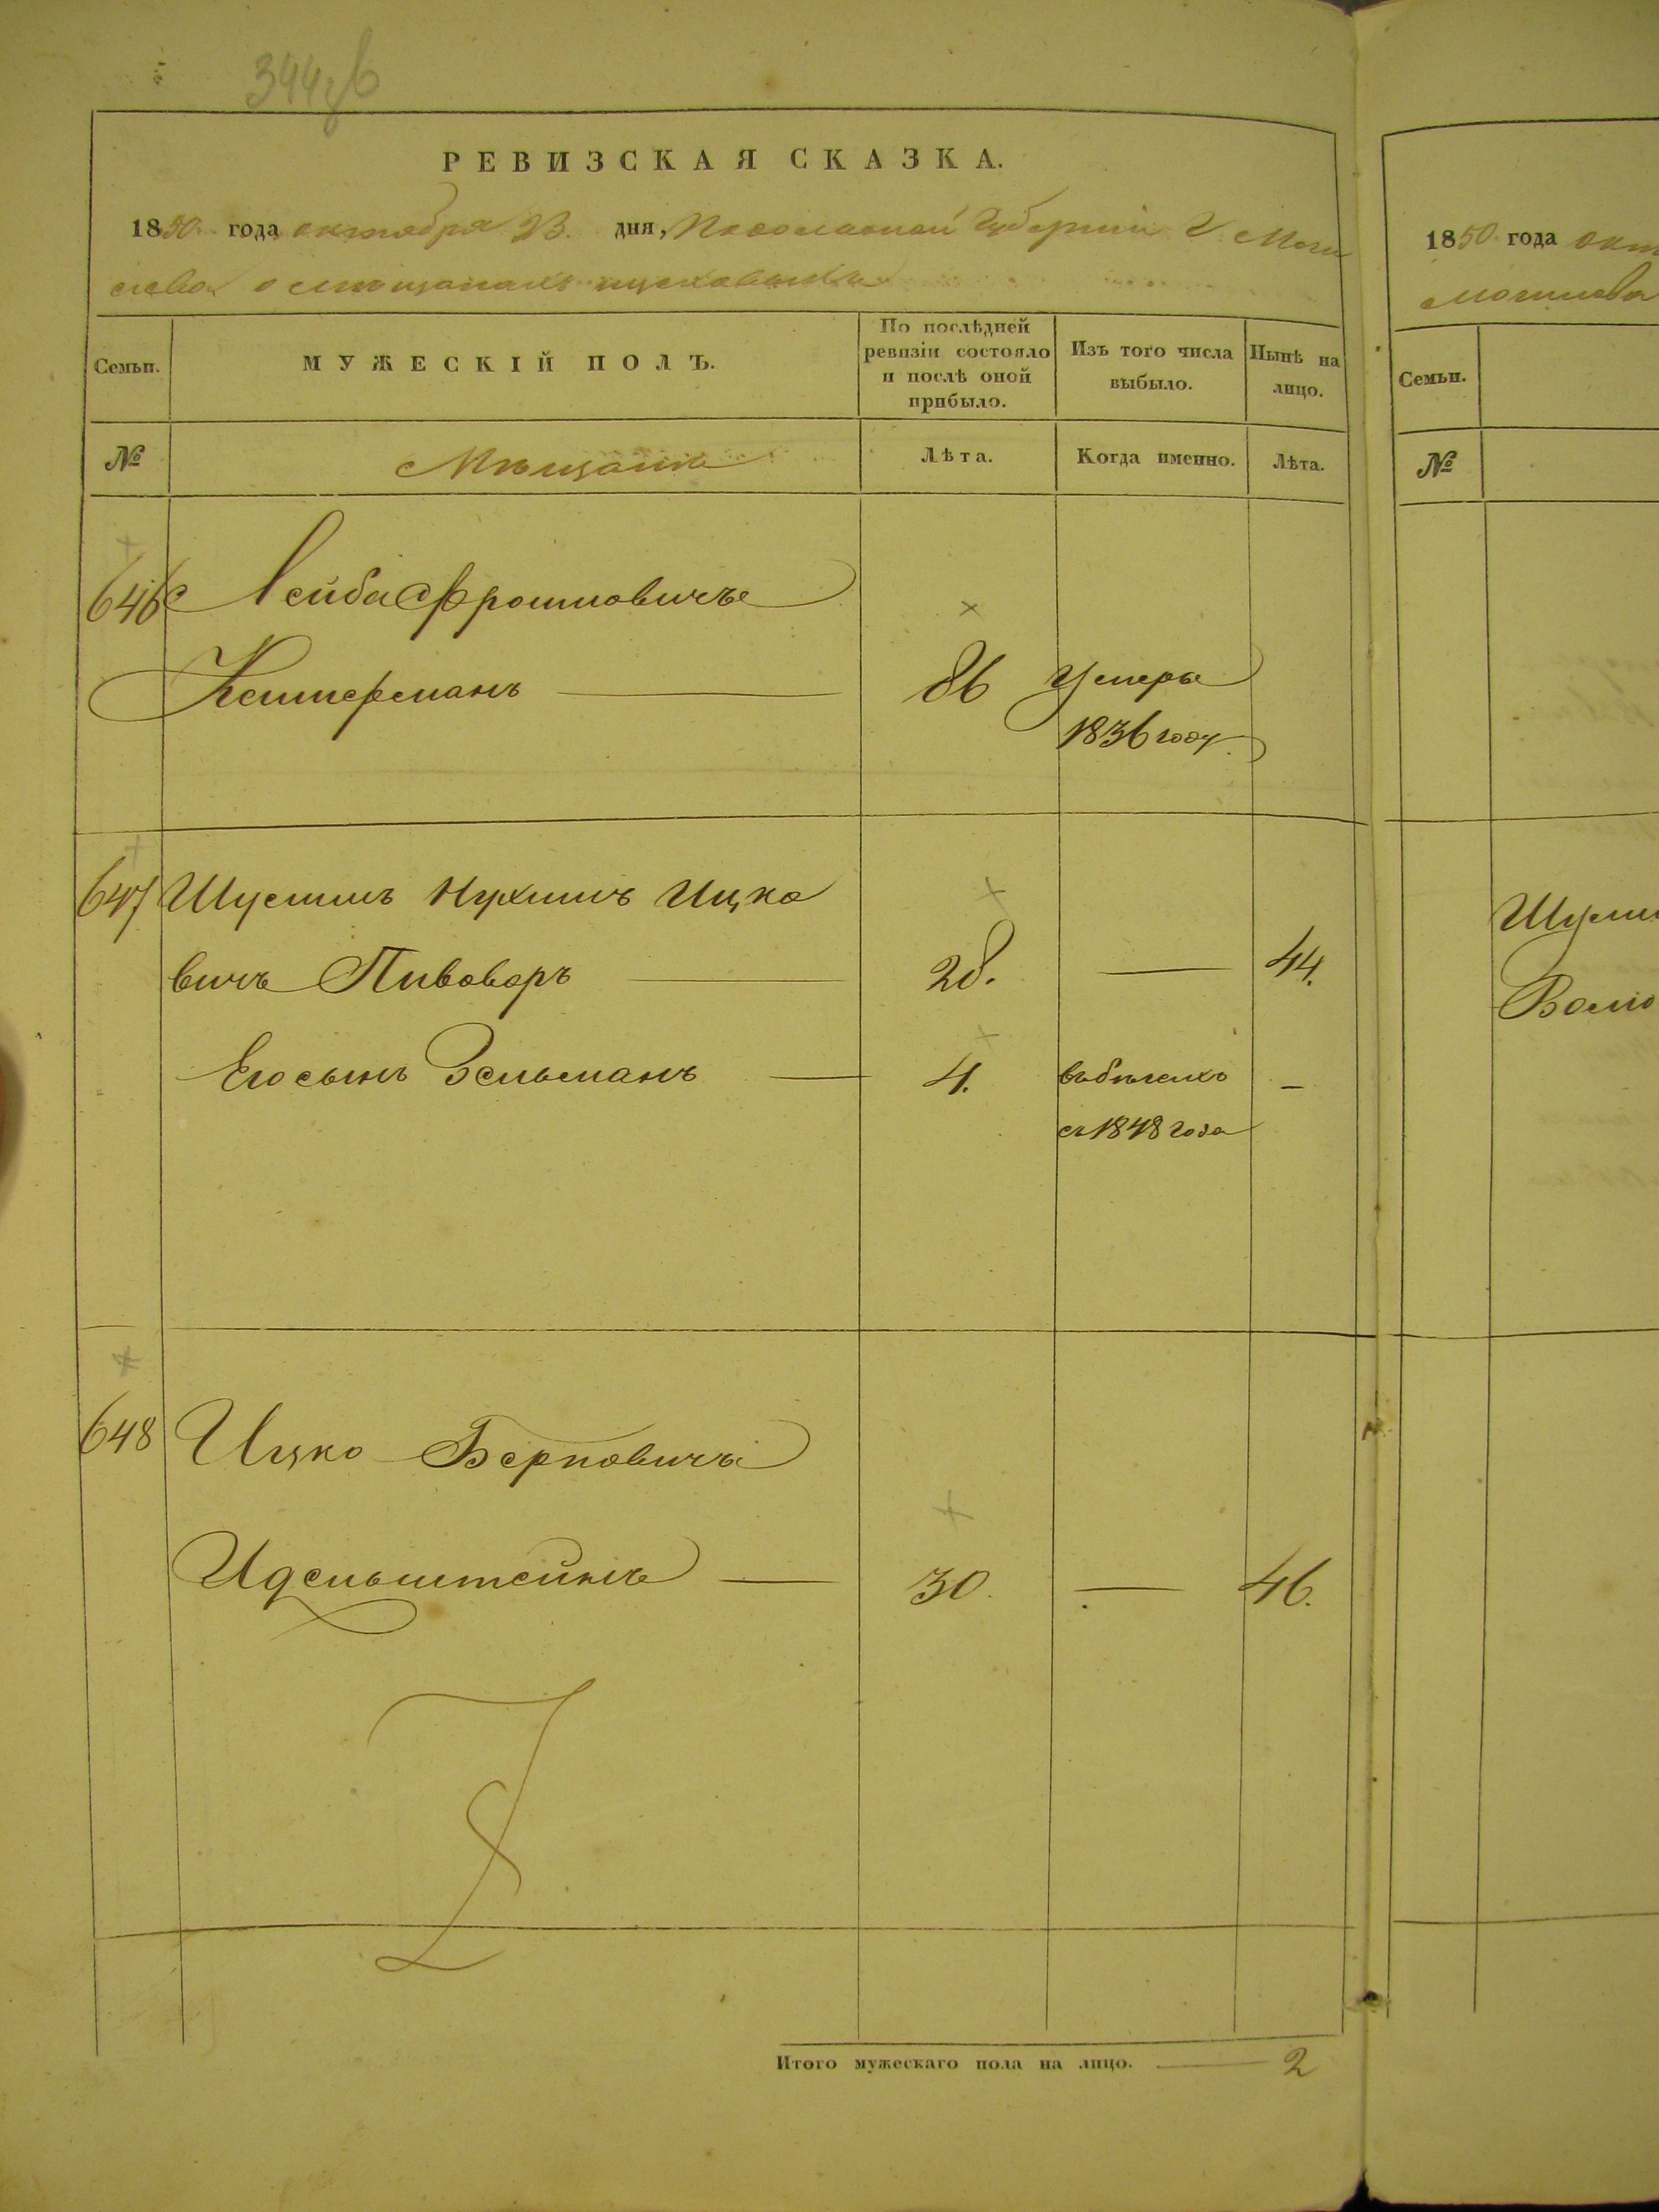 344
РЕВИЗСКАЯ СКАЗКА.
1850 года октября 23. дня, Подольской Губернии Г. Моги
лева о мещанах
Семьи.
МУЖЕСКІЙ ПОЛЪ.
По послѣдней ревизіи состояло и послѣ оной прибыло.
Изъ того числа выбыло.
Нынѣ на лицо.
№
Мещане
Лѣта.
Когда именно.
Лѣта.
646 Лейба Фроимовичъ
Кеммерманъ 86 Умеръ
1836 году
647 Шусмиль Нухимъ Ицко
вичъ Пивоваръ 28. 44.
Его сынъ Зельманъ 4. въ бѣгахъ
съ 1848 года
648 Ицко Берковичъ
Идельштейнъ 30. 46.
Итого мужескаго пола на лицо. 2
1850 года окт
Могилева
Семьи.
№